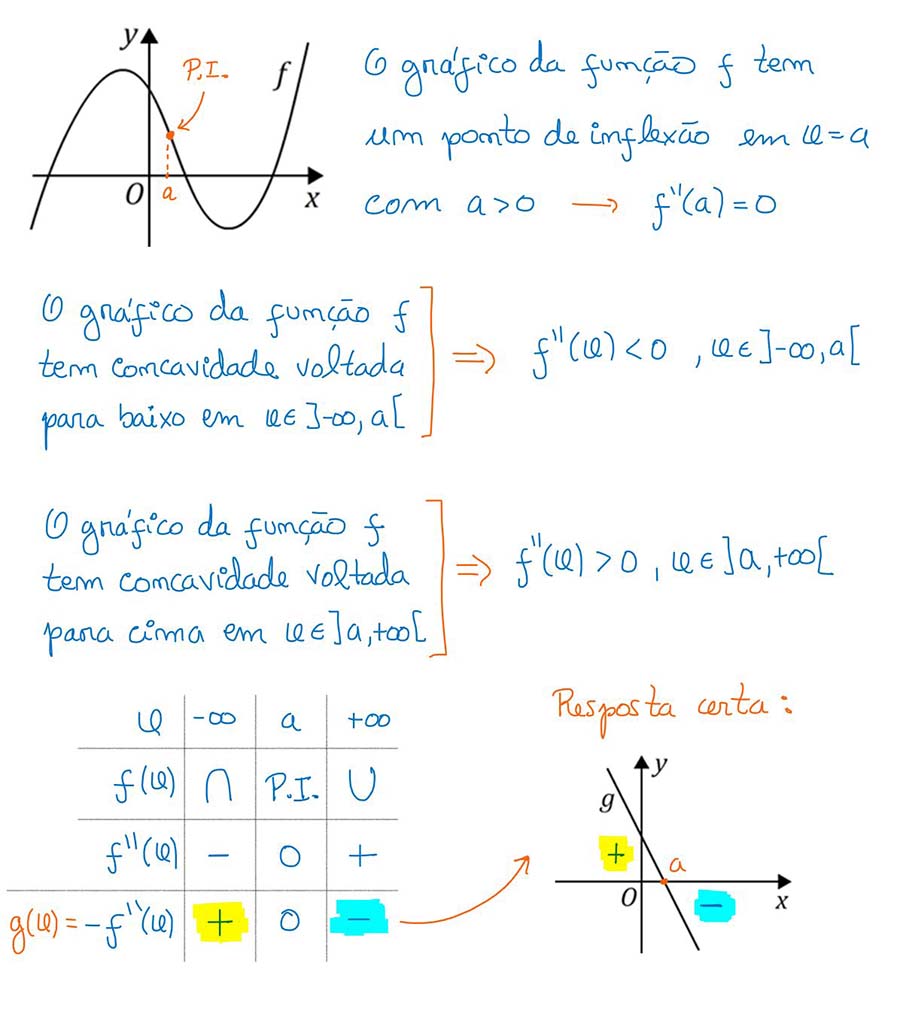 y
P.I.
f
O
a
x
O gráfico da função f tem
um ponto de inflexão em x=a
com a>0 → f''(a)=0
O gráfico da função f
tem concavidade voltada
para baixo em x∈]-∞,a[
⇒ f''(x)<0 , x∈]-∞,a[
O gráfico da função f
tem concavidade voltada
para cima em x∈]a,+∞[
⇒ f''(x)>0 , x∈]a,+∞[
x -∞ a +∞
f(x) ∩ P.I. ∪
f''(x) - 0 +
g(x)=-f''(x) + 0 -
Resposta certa:
y
g
+
a
O
-
x